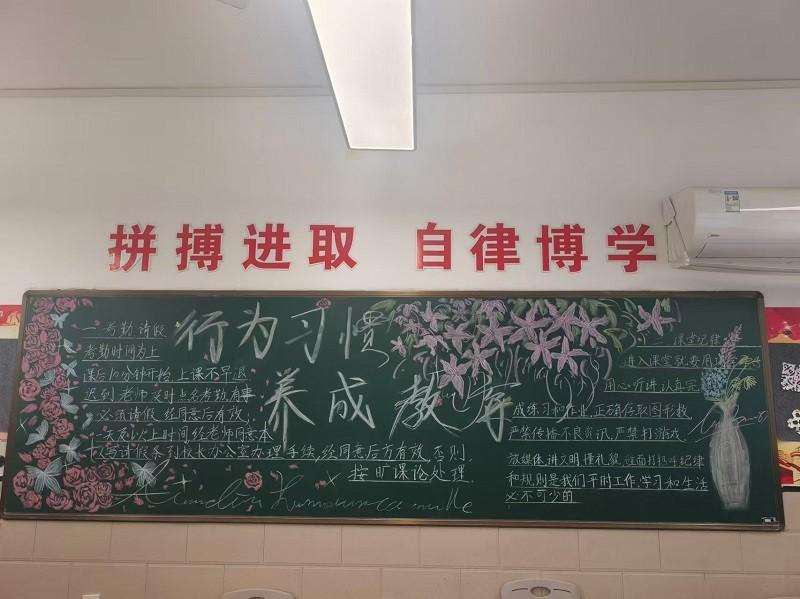 拼搏进取 自律博学
行为习惯
养成教育
一 考勤请假
考勤时间为上
课后10分钟开始,上课不早退
迟到 老师及时点名考勤,有事
必须请假 经同意后有效;
一天及以上时间经老师同意本
手续,经同意后方有效,否则
按旷课论处理.
二 课堂纪律
进入课堂就要用
用心听讲认真完
成练习和作业,正确存取图形数
严禁传播不良资讯,严禁打游戏.
讲文明懂礼貌 纪律
和规则是我们平时工作学习和生活
必不可少的